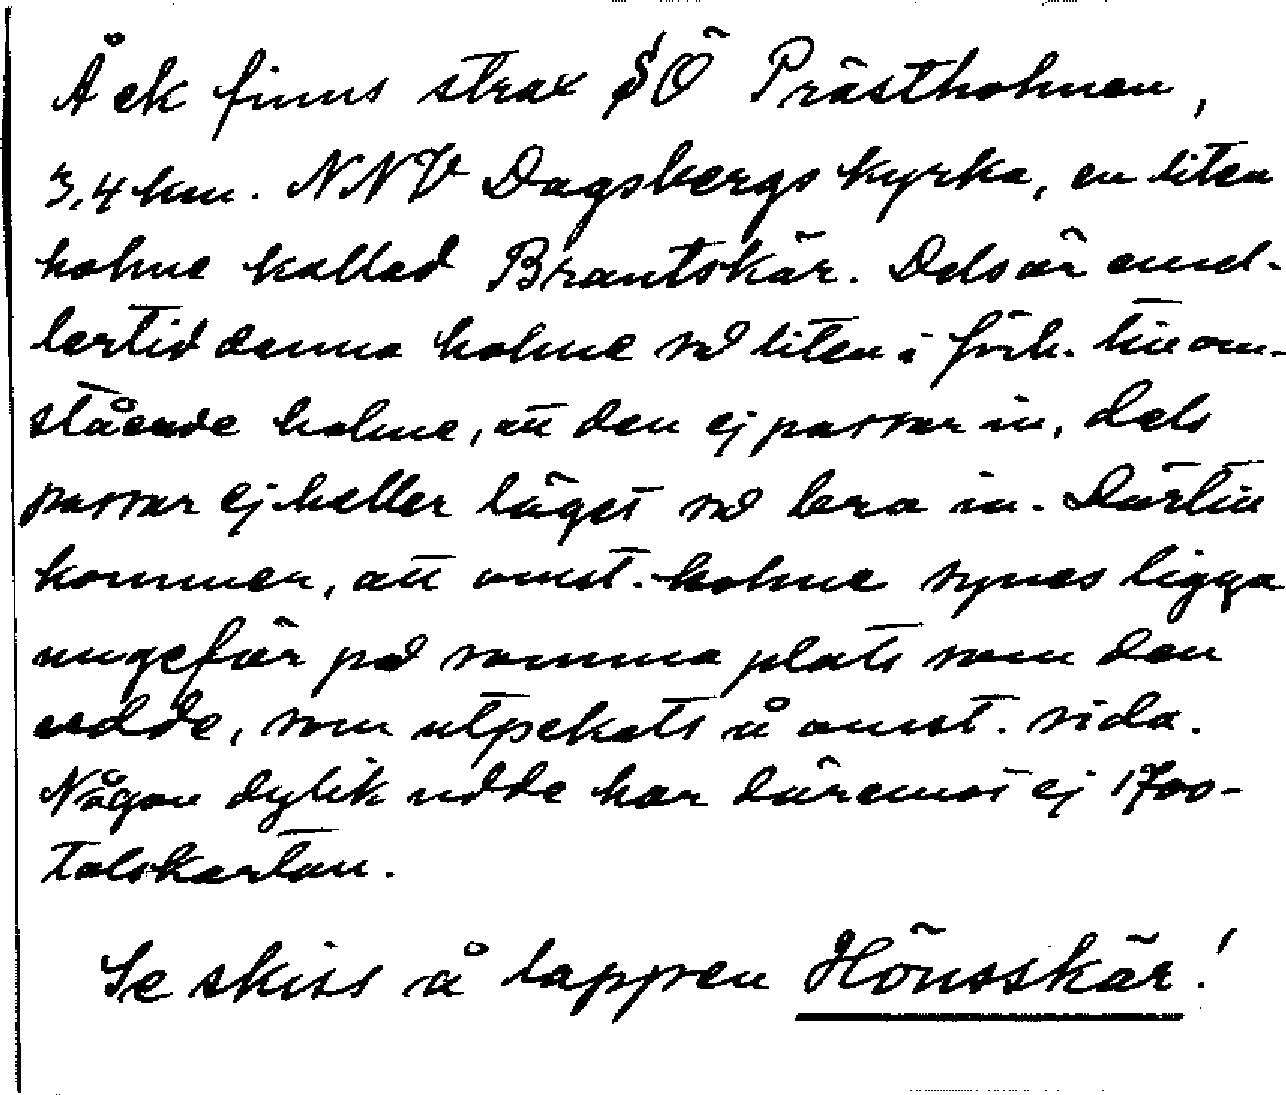 Å ek finns strax SÖ Prästholmen,
3,4 km. NNV Dagsbergs kyrka, en liten
holme kallad Brantskär. Dels är emel-
lertid denna holme så liten i förh. till om-
stående holme, att den ej passar in, dels
passar ej heller läget så bra in. Därtill
kommer, att omst. holme synes ligga
ungefär på samma plats som den
udde, som utpekats å omst. sida.
Någon dylik udde har däremot ej 1700-
talskartan.
Se skiss å lappen Hönsskär!